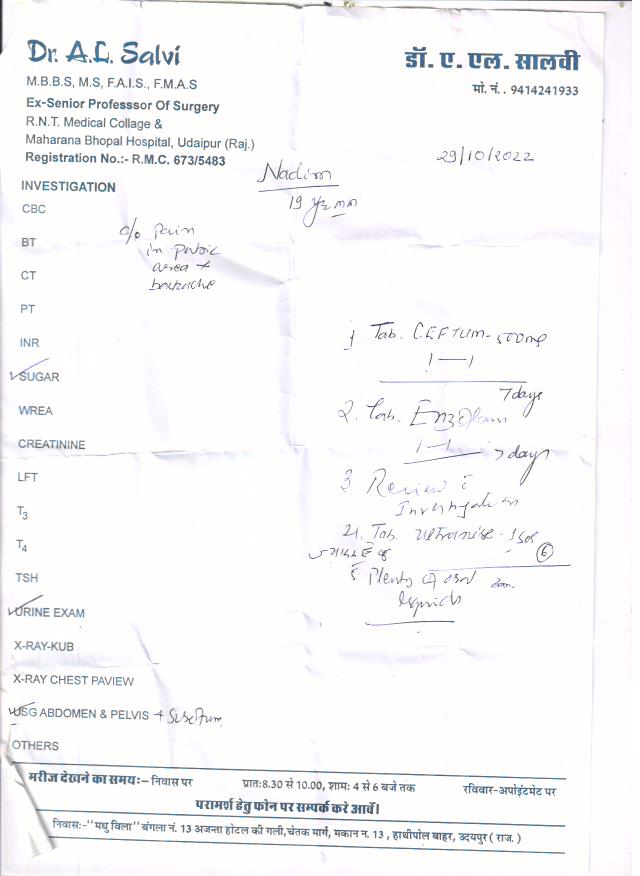 Dr. A.L. Salvi
M.B.B.S, M.S, F.A.I.S., F.M.A.S
Ex-Senior Professsor Of Surgery
R.N.T. Medical Collage &
Maharana Bhopal Hospital, Udaipur (Raj.)
Registration No.:- R.M.C. 673/5483
डॉ. ए. एल. सालवी
मो. नं. . 9414241933
29/10/2022
Nadim
19
INVESTIGATION
CBC
BT
CT
PT
INR
SUGAR
WREA
CREATININE
LFT
T3
T4
TSH
URINE EXAM
X-RAY-KUB
X-RAY CHEST PAVIEW
USG ABDOMEN & PELVIS +
OTHERS
c/o Pain
in pubic
area +
backache
1 Tab. CEFTUM-500mg
1—1
7days
2. Tab.
1-1 7days
3 Review c
Investigation
4. Tab.
6
5 Plenty of oral
liquids
मरीज देखने का समयः– निवास पर प्रातः8.30 से 10.00, शामः 4 से 6 बजे तक रविवार-अपोइंटमेट पर
परामर्श हेतु फोन पर सम्पर्क करे आवें।
निवासः-“मधु विला” बंगला नं. 13 अजन्ता होटल की गली,चेतक मार्ग, मकान न. 13 , हाथीपोल बाहर, उदयपुर ( राज. )